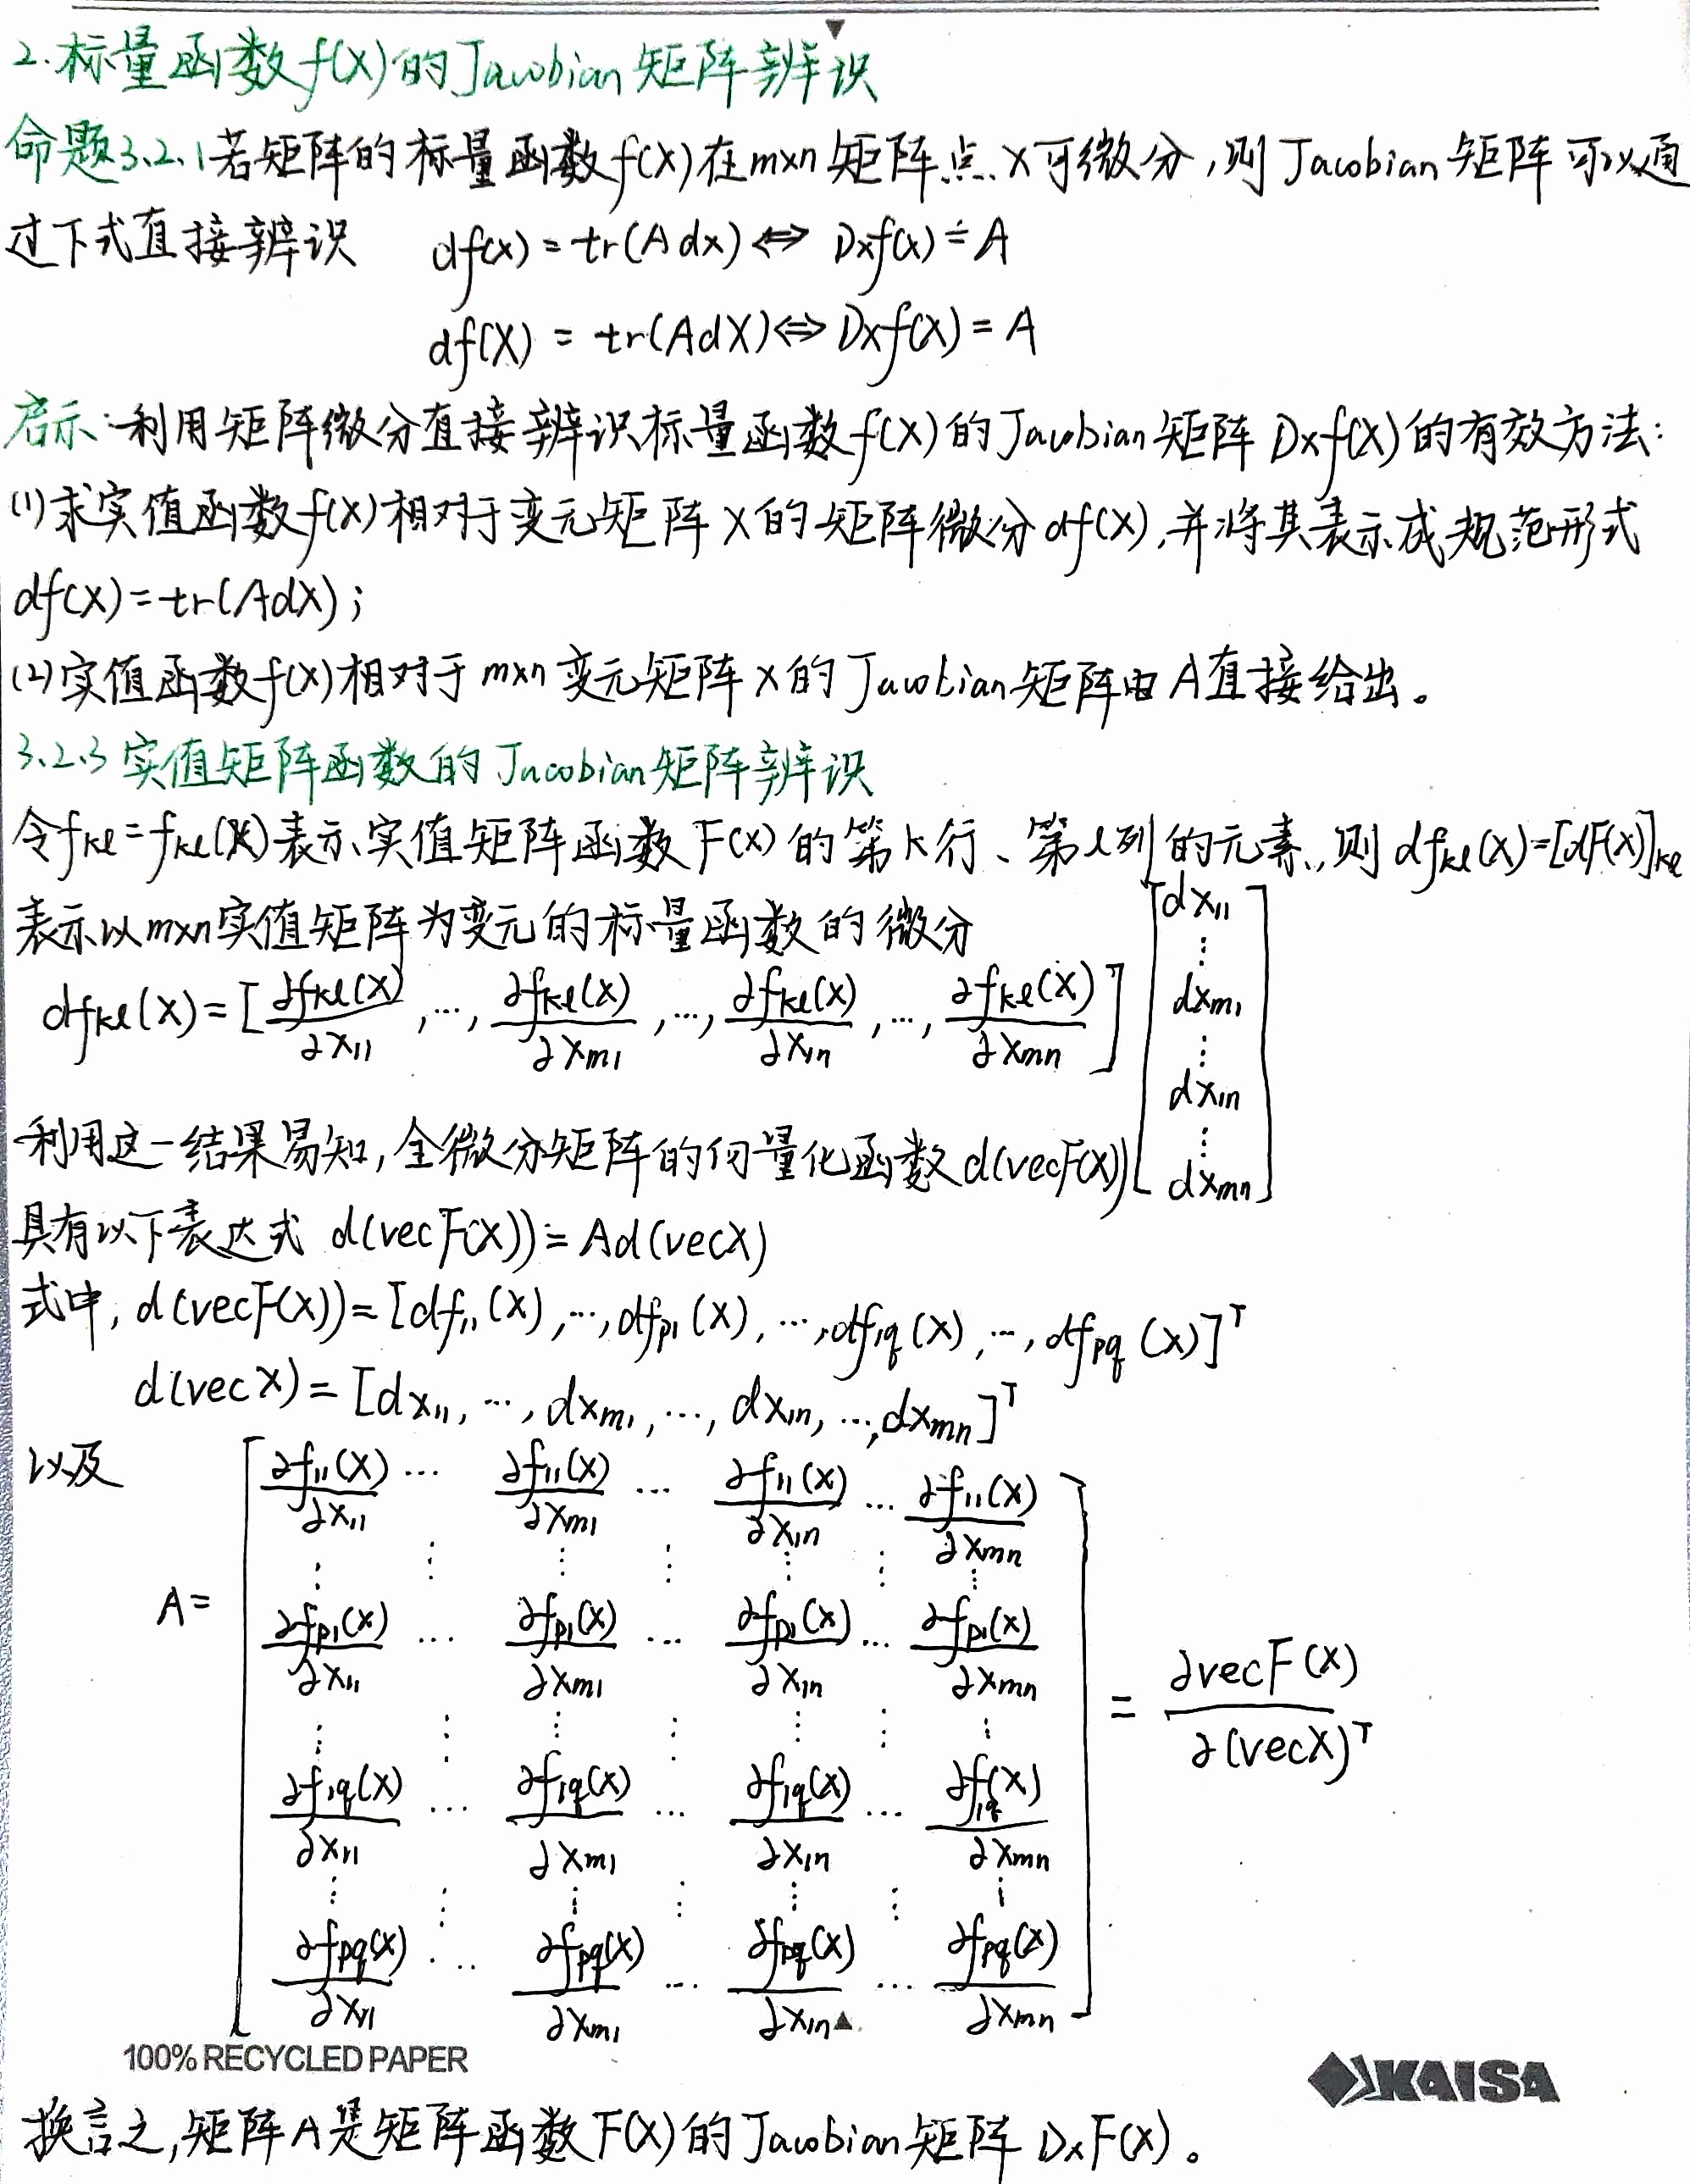 2.标量函数f(X)的Jacobian矩阵辨识
命题3.2.1若矩阵的标量函数f(X)在m×n矩阵点X可微分,则Jacobian矩阵可以通
过下式直接辨识 df(x)=tr(Adx)⇔Dxf(x)=A
df(X)=tr(AdX)⇔Dxf(X)=A
启示:利用矩阵微分直接辨识标量函数f(X)的Jacobian矩阵Dxf(X)的有效方法:
(1)求实值函数f(X)相对于变元矩阵X的矩阵微分df(X),并将其表示成规范形式
df(X)=tr(AdX);
(2)实值函数f(X)相对于m×n变元矩阵X的Jacobian矩阵由A直接给出。
3.2.3实值矩阵函数的Jacobian矩阵辨识
令fkl=fkl(X)表示实值矩阵函数F(X)的第k行、第l列的元素,则dfkl(X)=[dF(X)]kl
表示以m×n实值矩阵为变元的标量函数的微分
dfkl(X)=[∂fkl(X)/∂x11,…,∂fkl(X)/∂xm1,…,∂fkl(X)/∂x1n,…,∂fkl(X)/∂xmn][dx11 ⋮ dxm1 ⋮ dx1n ⋮ dxmn]
利用这一结果易知,全微分矩阵的向量化函数d(vecF(X))
具有以下表达式 d(vecF(X))=Ad(vecX)
式中,d(vecF(X))=[df11(X),…,dfp1(X),…,df1q(X),…,dfpq(X)]ᵀ
d(vecX)=[dx11,…,dxm1,…,dx1n,…,dxmn]ᵀ
以及
A=[∂f11(X)/∂x11 … ∂f11(X)/∂xm1 … ∂f11(X)/∂x1n … ∂f11(X)/∂xmn
⋮ ⋮ ⋮ ⋮ ⋮ ⋮ ⋮
∂fp1(X)/∂x11 … ∂fp1(X)/∂xm1 … ∂fp1(X)/∂x1n … ∂fp1(X)/∂xmn
⋮ ⋮ ⋮ ⋮ ⋮ ⋮ ⋮
∂f1q(X)/∂x11 … ∂f1q(X)/∂xm1 … ∂f1q(X)/∂x1n … ∂f1q(X)/∂xmn
⋮ ⋮ ⋮ ⋮ ⋮ ⋮ ⋮
∂fpq(X)/∂x11 … ∂fpq(X)/∂xm1 … ∂fpq(X)/∂x1n … ∂fpq(X)/∂xmn] = ∂vecF(X)/∂(vecX)ᵀ
100% RECYCLED PAPER
KAISA
换言之,矩阵A是矩阵函数F(X)的Jacobian矩阵DxF(X)。